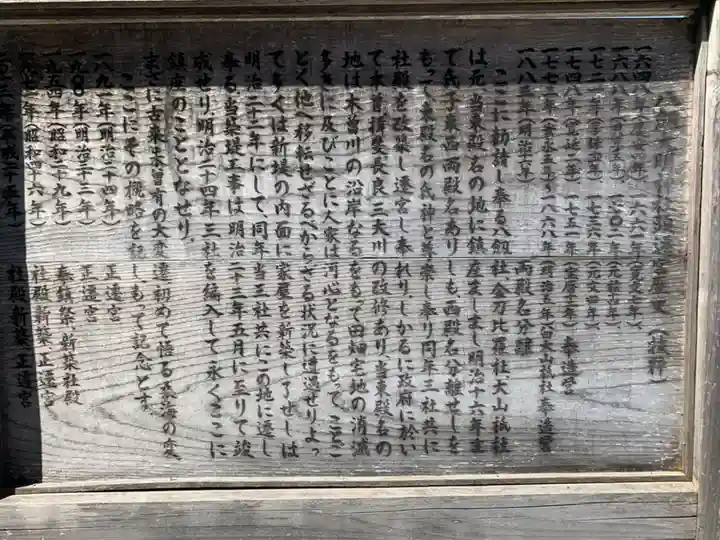 八劔大明神社殿造営歴史(抜粋)
一六四八年(慶安元年)一六六二年(寛文二年)
一六八八年(元禄元年)一七〇二年(元禄十五年)
一七二一年(享保六年)一七三六年(元文四年)
一七四八年(寛延二年)一七五二年(宝暦二年)奉造営
一七七二年(安永五年)一八六八年(明治五年)内大山祇社奉造営
一八八三年(明治十六年)両殿名分離
ここに勧請し奉る八劔社金刀比羅社大山祇社
は元当東殿名の地に鎮座ましまし明治十六年迄
で氏子東西両殿名ありしも西殿名分離せしを
もって東殿名の氏神と尊崇し奉り同年三社共に
社殿を改築し遷宮し奉れり、しかるに政府に於い
て木曽揖斐長良、三大川の改修あり、当東殿名の
地は木曽川の沿岸なるをもて田畑宅地の消滅
多きに及びことに人家は河心となるをもって、ことご
とく他へ移転せざるべからざる状況に遭遇せりよっ
て多くは新堤の内面に家屋を新築し了せしは
明治二十二年にして、同年当三社共にこの地に遷し
奉る当築堤工事は明治二十三年五月に至りて竣
成せり、明治二十四年三社を編入して永くここに
鎮座のこととなせり、
まさに古来未曽有の大変遷初めて悟る桑海の変
ここにその概略を記し、もって記念とす、
一八九一年(明治二十四年)正遷宮
一九〇〇年(明治三十三年)正遷宮
一九五四年(昭和二十九年)奉鎮祭、新築社殿
一九七一年(昭和四十六年)社殿新築、正遷宮
二〇一三年(平成二十五年)社殿新築、正遷宮